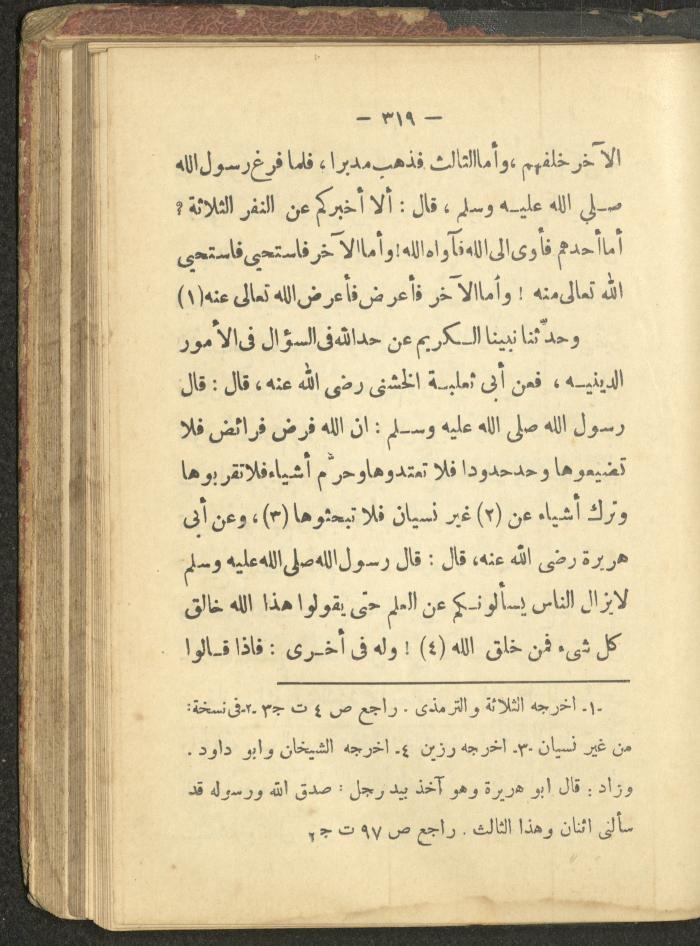 — ٣١٩ —
الآخر خلفهم ، وأما الثالث فذهب مدبرا ، فلما فرغ رسول الله
صلي الله عليه وسلم ، قال : ألا أخبركم عن النفر الثلاثة ؟
أما أحدهم فأوى الى الله فآواه الله ! وأما الآخر فاستحيى فاستحيى
الله تعالى منه ! وأما الآخر فأعرض فأعرض الله تعالى عنه (١)
وحدّثنا نبينا الكريم عن حد الله فى السؤال فى الأمور
الدينيه ، فعن أبى ثعلبة الخشنى رضى الله عنه ، قال : قال
رسول الله صلى الله عليه وسلم : ان الله فرض فرائض فلا
تضيعوها وحد حدودا فلا تعتدوها وحرّم أشياء فلا تقربوها
وترك أشياء عن (٢) غير نسيان فلا تبحثوها (٣) ، وعن أبى
هريرة رضى الله عنه، قال : قال رسول الله صلى الله عليه وسلم
لايزال الناس يسألونكم عن العلم حتى يقولوا هذا الله خالق
كل شىء فمن خلق الله (٤) ! وله فى أخرى : فاذا قالوا
-١- اخرجه الثلاثة والترمذى . راجع ص ٤ ت ج٣ -٢- فى نسخة :
من غير نسيان -٣- اخرجه رزين ٤- اخرجه الشيخان وابو داود .
وزاد : قال ابو هريرة وهو آخذ بيد رجل : صدق الله ورسوله قد
سألنى اثنان وهذا الثالث . راجع ص ٩٧ ت ج٢